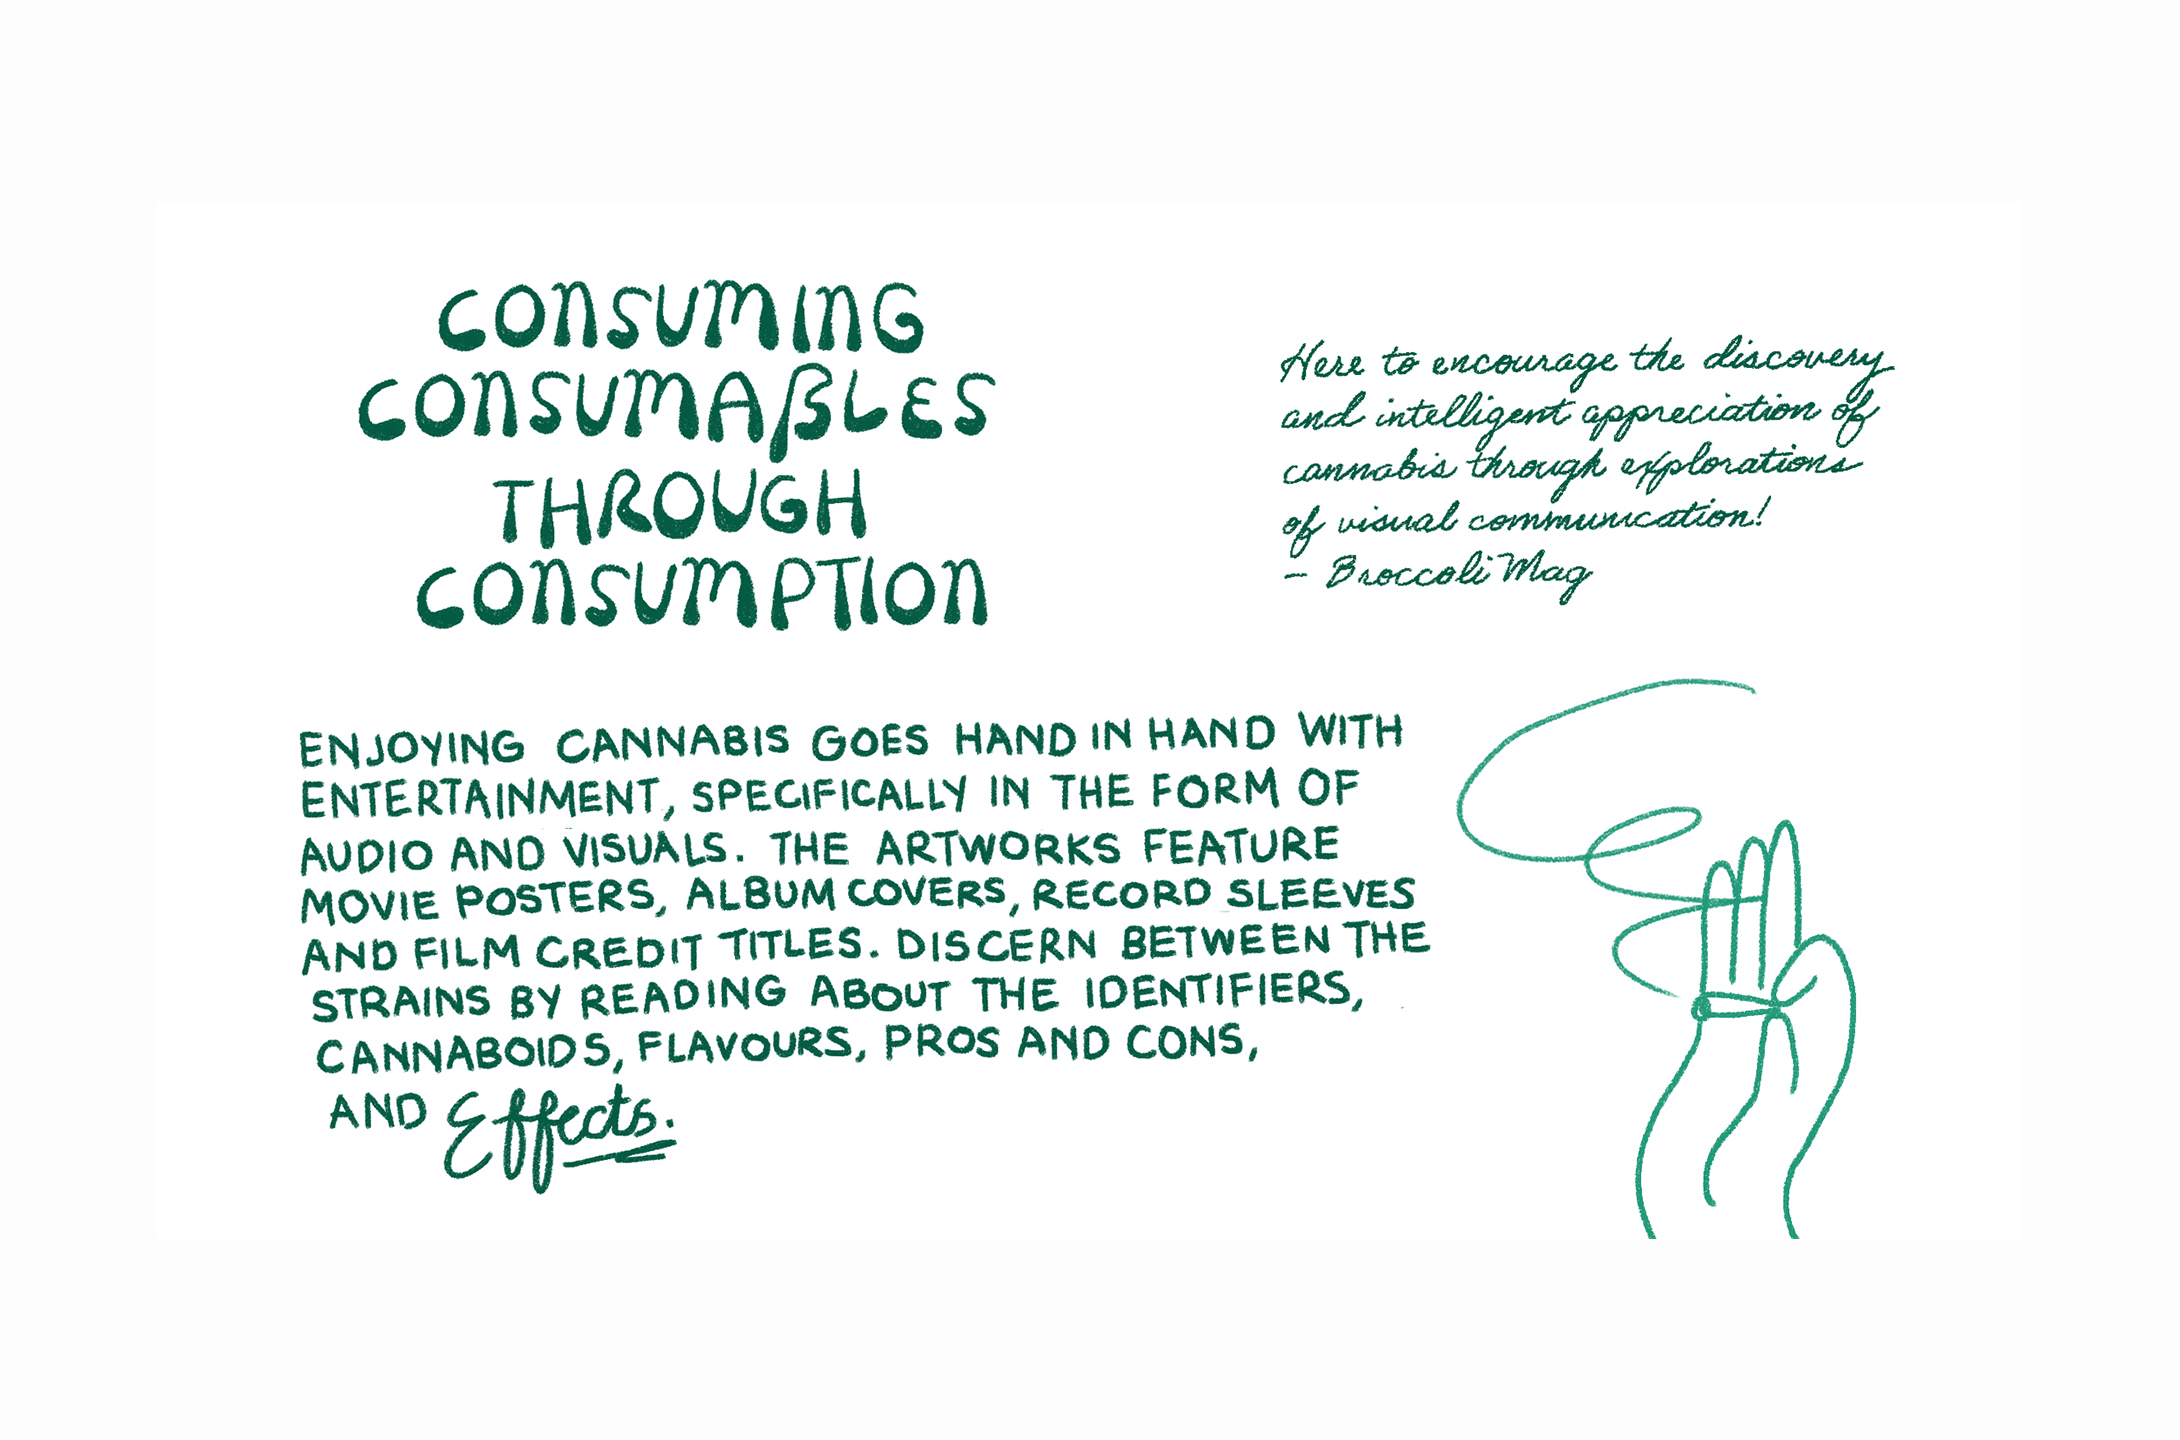 CONSUMING
CONSUMABLES
THROUGH
CONSUMPTION
Here to encourage the discovery
and intelligent appreciation of
cannabis through explorations
of visual communication!
– Broccoli Mag
ENJOYING CANNABIS GOES HAND IN HAND WITH
ENTERTAINMENT, SPECIFICALLY IN THE FORM OF
AUDIO AND VISUALS. THE ARTWORKS FEATURE
MOVIE POSTERS, ALBUM COVERS, RECORD SLEEVES
AND FILM CREDIT TITLES. DISCERN BETWEEN THE
STRAINS BY READING ABOUT THE IDENTIFIERS,
CANNABOIDS, FLAVOURS, PROS AND CONS,
AND Effects.